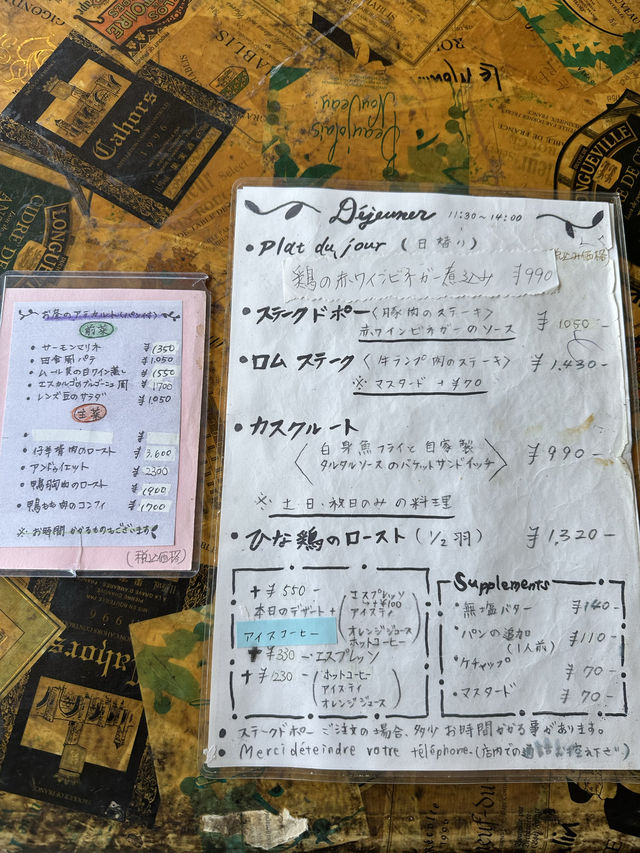 Cahors
1996
Beaujolais
Nouveau
CIDRE DE
LONGUEVILLE
お昼のアラカルト(パン付)
前菜
・サーモンマリネ ¥1350
・田舎風パテ ¥1,050
・ムール貝の白ワイン蒸し ¥1550
・エスカルゴのブルゴーニュ風 ¥1700
・レンズ豆のサラダ ¥1,050
主菜
・仔羊背肉のロースト ¥3,600
・アンドゥイエット ¥2300
・鴨胸肉のロースト ¥1900
・鴨もも肉のコンフィ ¥1700
※お時間かかるものもございます
(税込価格)
Déjeuner 11:30~14:00
税込み価格
・Plat du jour (日替り)
鶏の赤ワインビネガー煮込み ¥990
・ステークドポー〈豚肉のステーキ〉 ¥1050-
赤ワインビネガーのソース
・ロムステーク〈牛ランプ肉のステーキ〉 ¥1,430-
※マスタード+¥70
・カスクルート
〈白身魚フライと自家製 ¥990-
タルタルソースのバゲットサンドイッチ〉
※土・日・祝日のみの料理
・ひな鶏のロースト(1/2羽) ¥1,320-
+¥550-
本日のデザート+
(エスプレッソ
++¥100
アイスティ
オレンジジュース
ホットコーヒー)
アイスコーヒー
+¥330-エスプレッソ
+¥230-(ホットコーヒー
アイスティ
オレンジジュース)
Supplements
・無塩バター ¥140-
・パンの追加 ¥110-
(1人前)
・ケチャップ ¥70-
・マスタード ¥70-
・ステークドポーご注文の場合、多少お時間かかる事があります。
・Merci déteindre votre téléphone.(店内での通 控え下さい)
Cahors